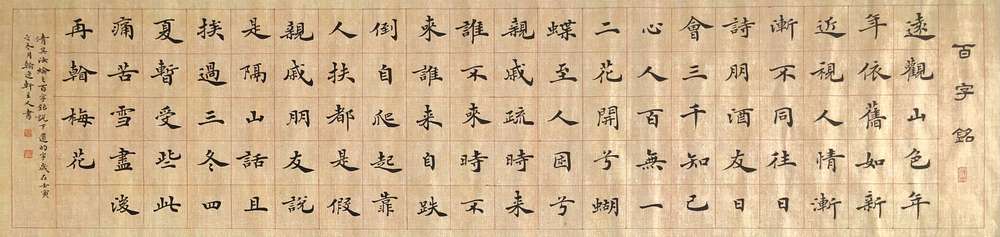 百字銘
遠觀山色年
年依舊如新
近視人情漸
漸不同往日
詩朋酒友日
會三千知己
心人百無一
二花開兮蝴
蝶至人困兮
親戚疏時來
誰不來時不
來誰來自跌
倒自爬起靠
人扶都是假
親戚朋友說
是隔山話且
挨過三冬四
夏暫受些此
痛苦雪盡後
再翰梅花
清吳汝綸之百字銘說下邊的字歲在壬寅
之冬月翰逸軒主人書